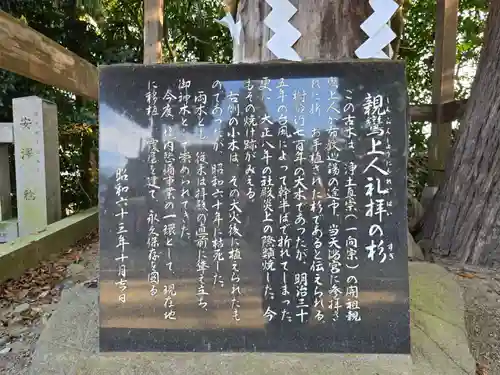 親鸞上人礼拝の杉
しんらんしょうにんらいはいのすぎ
この古木は、浄土真宗(一向宗)の開祖親
鸞上人が布教巡錫の途中、当天満宮に参拝さ
れた折、お手植された杉であると伝えられる。
樹齢約七百年の大木であったが、明治三十
五年の台風によって幹半ばで折れてしまった。
更に、大正八年の社殿炎上の際類焼した。今
もその焼け跡がみえる。
右側の小木は、その大火後に植えられたも
のであったが、昭和六十年に枯死した。
両木とも、従来は拝殿の直前に聳え立ち、
御神木として崇められていた。
今度、境内整備事業の一環として、現在地
に移植し、覆屋を建て、永久保存を図る。
昭和六十三年十月吉日
安澤 稔